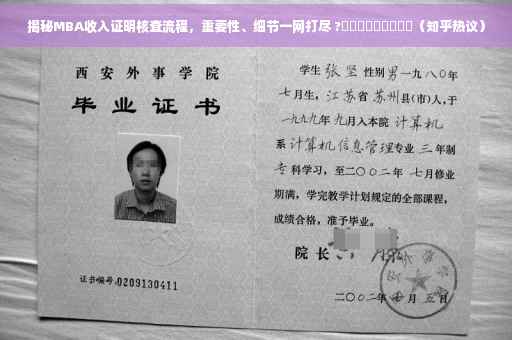 揭秘MBA收入证明核查流程，重要性、细节一网打尽？（知乎热议）
西安外事学院
毕业证书
证书编号:0209130411
学生 张坚 性别 男 一九八〇年
七月生，江苏省 苏州县(市)人，于
一九九九年 九月入本院 计算机
系 计算机信息管理专业 三 年制
专 科学习，至二〇〇二年 七月修业
期满，学完教学计划规定的全部课程，
成绩合格，准予毕业。
院长
二〇〇二年 月 五日